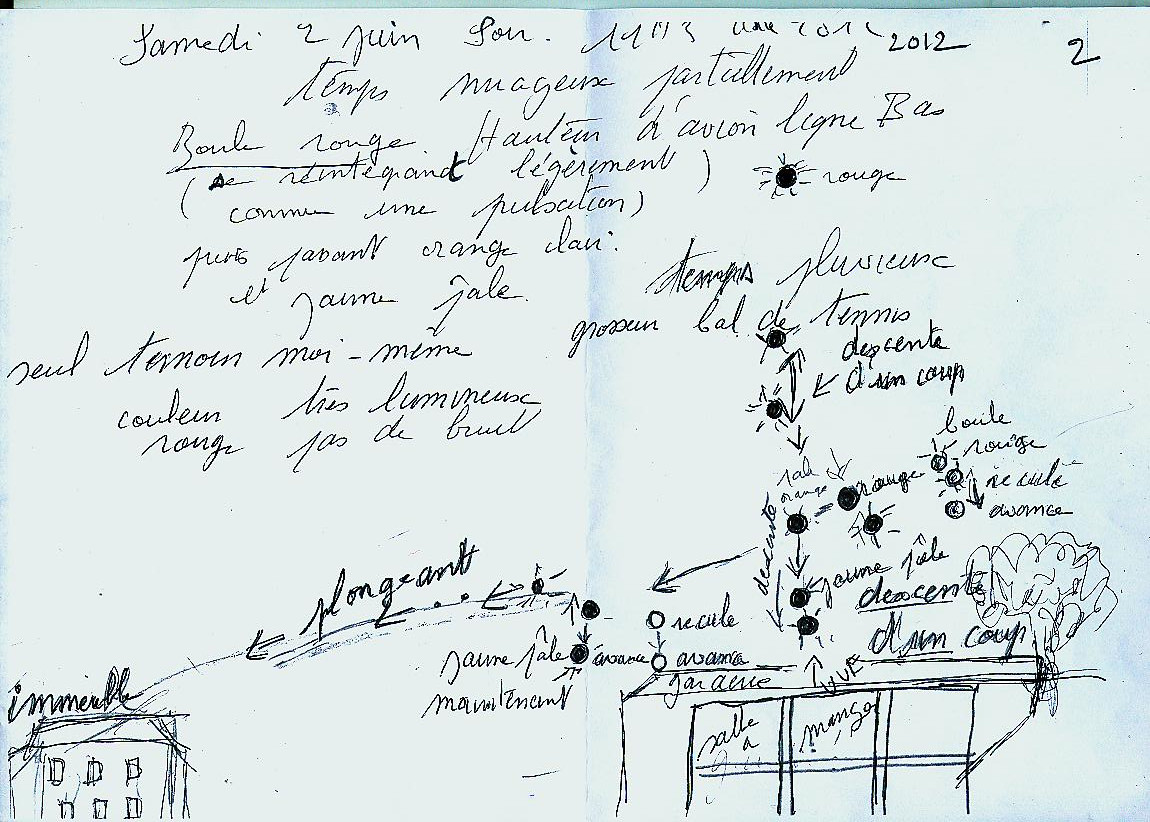 Samedi 2 juin Soir. 2012
2
temps nuageux partiellement
Boule rouge. Hauteur d'avion ligne Bas
(se réintégrant légèrement)
rouge
(comme une pulsation)
puis passant orange clair.
et jaune pâle.
temps pluvieux
grosseur bal de tennis
seul temoin moi-même
descente
d'un coup
couleur très lumineux
rouge pas de bruit
boule
rouge
pale
orange
rouge
recule
avance
descente
plongeant
jaune pâle
descente
d'un coup
recule
jaune pâle avance avance
maintenant
VUE
immeuble
salle
à
mange